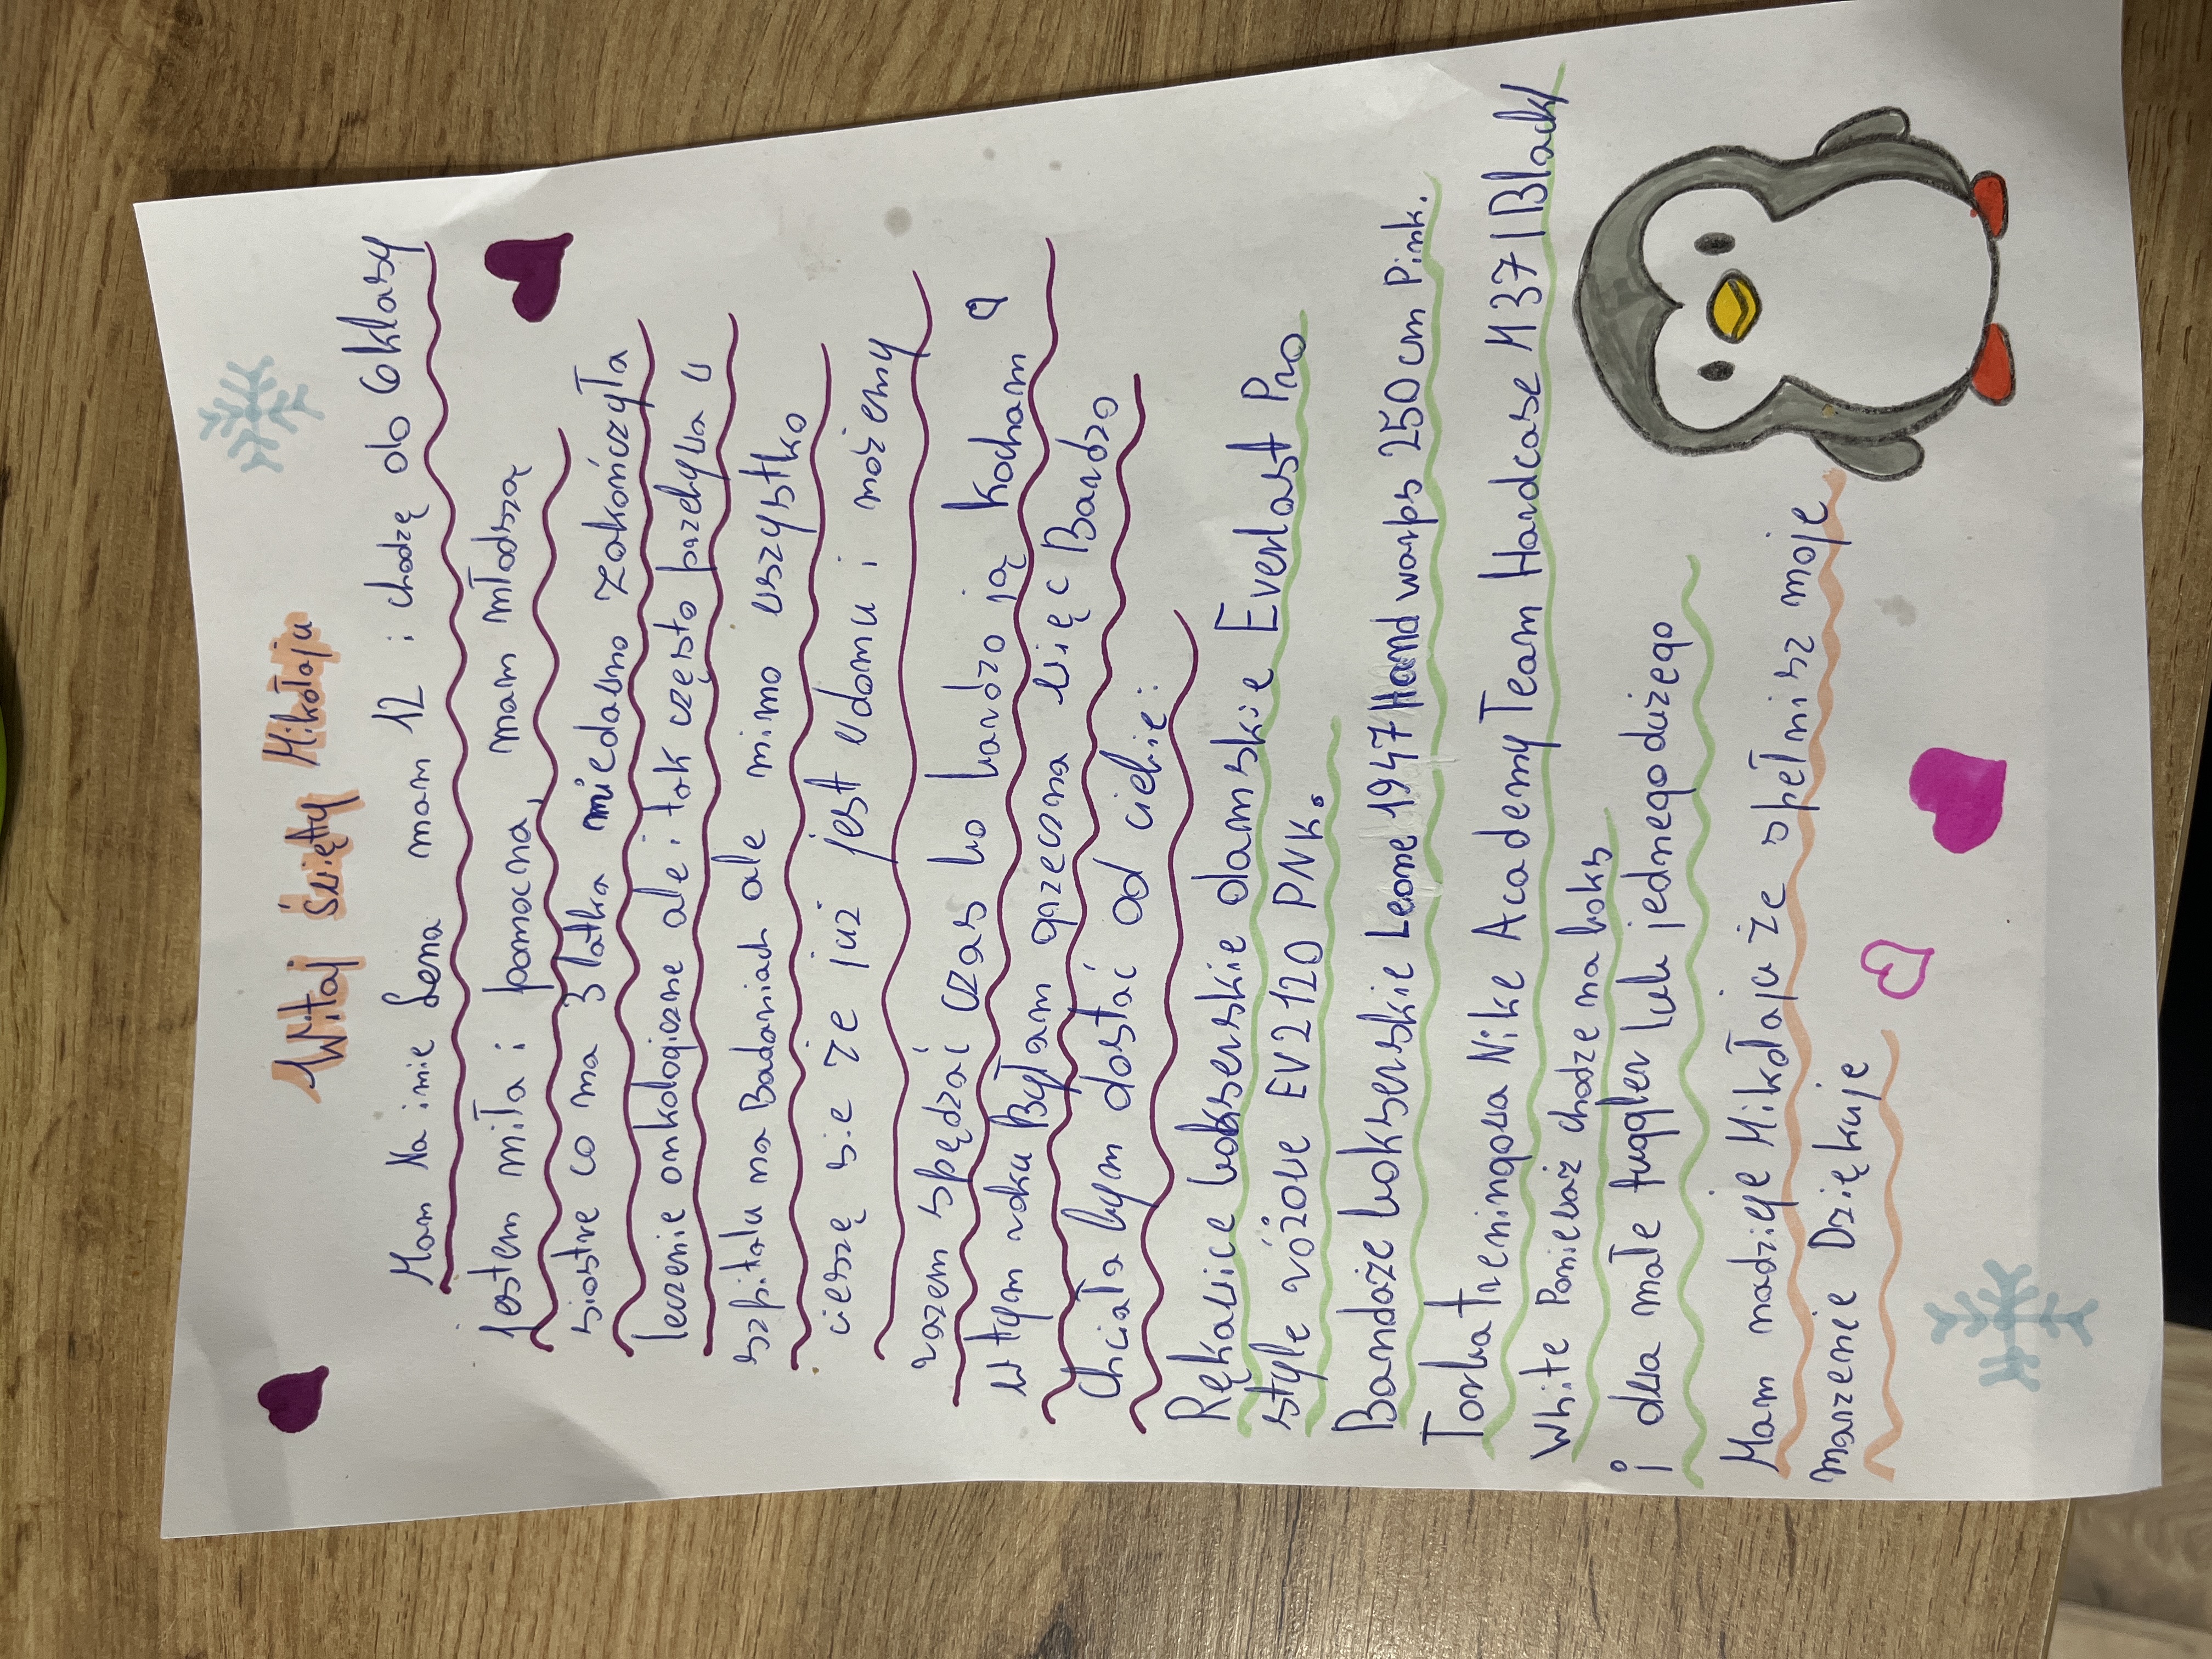 Witaj Święty Mikołaju
Mam Na imie Lena mam 12 i chodzę do 6 klasy
jestem miła i pomocna, mam młodszą
siostre co ma 3 latka niedawno zakończyła
leczenie onkologiczne ale i tak często przebywa w
szpitalu na Badaniach ale mimo wszystko
cieszę sie że już jest w domu i możemy
razem spędzać czas bo bardzo ją kocham ♡
w tym roku Byłam grzeczna więc Bardzo
Chciała bym dostać od ciebie:
Rękawice bokserskie damskie Everlast Pro
style różowe EV2120 PNK.
Bandaże bokserskie Leone 1947 Hand warps 250cm Pink.
Torba treningowa Nike Academy Team Hardcase M 37 l Black/
White Ponieważ chodze na boks
i dwa małe fuggler lub jednego dużego
Mam nadzieje Mikołaju że spełnisz moje
marzenie Dziękuje